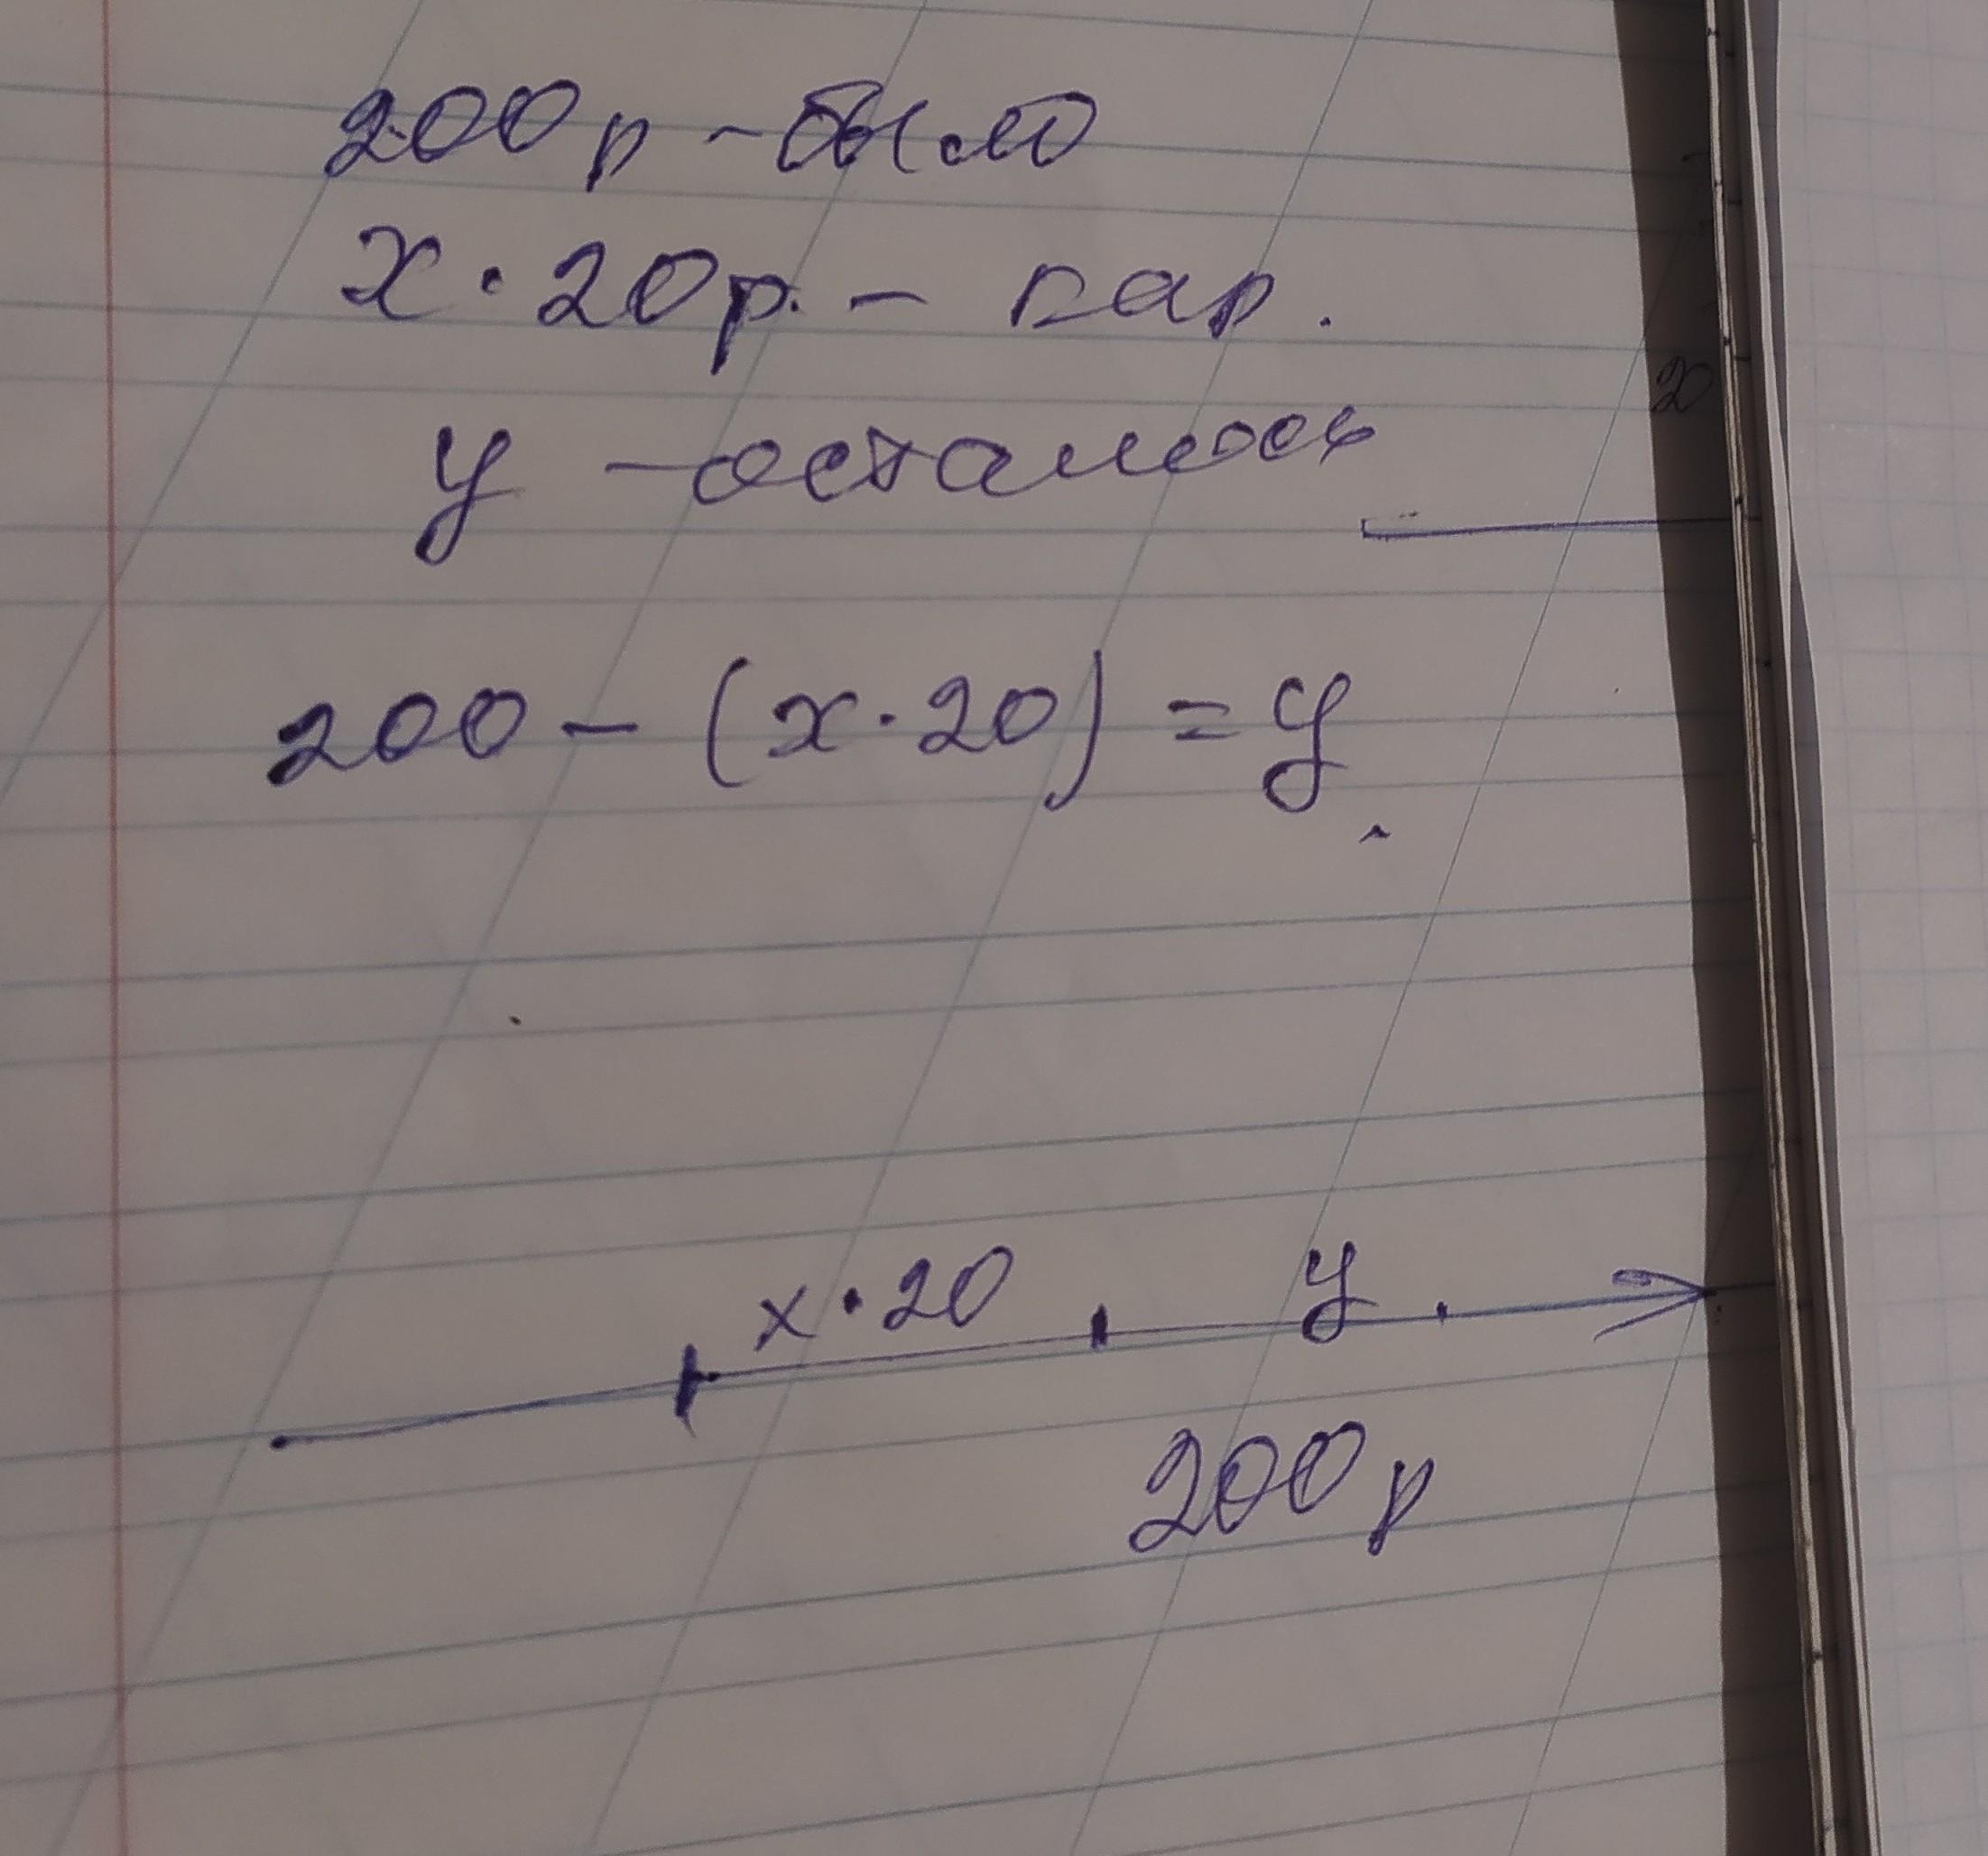 200 р - было
x · 20 р. - кар.
y - осталось
20
200 - (x · 20) = y
x · 20
y
200 р